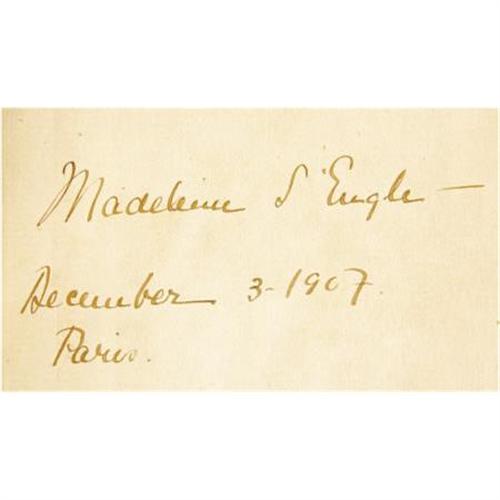 Madeleine L'Engle —
December 3-1907.
Paris.